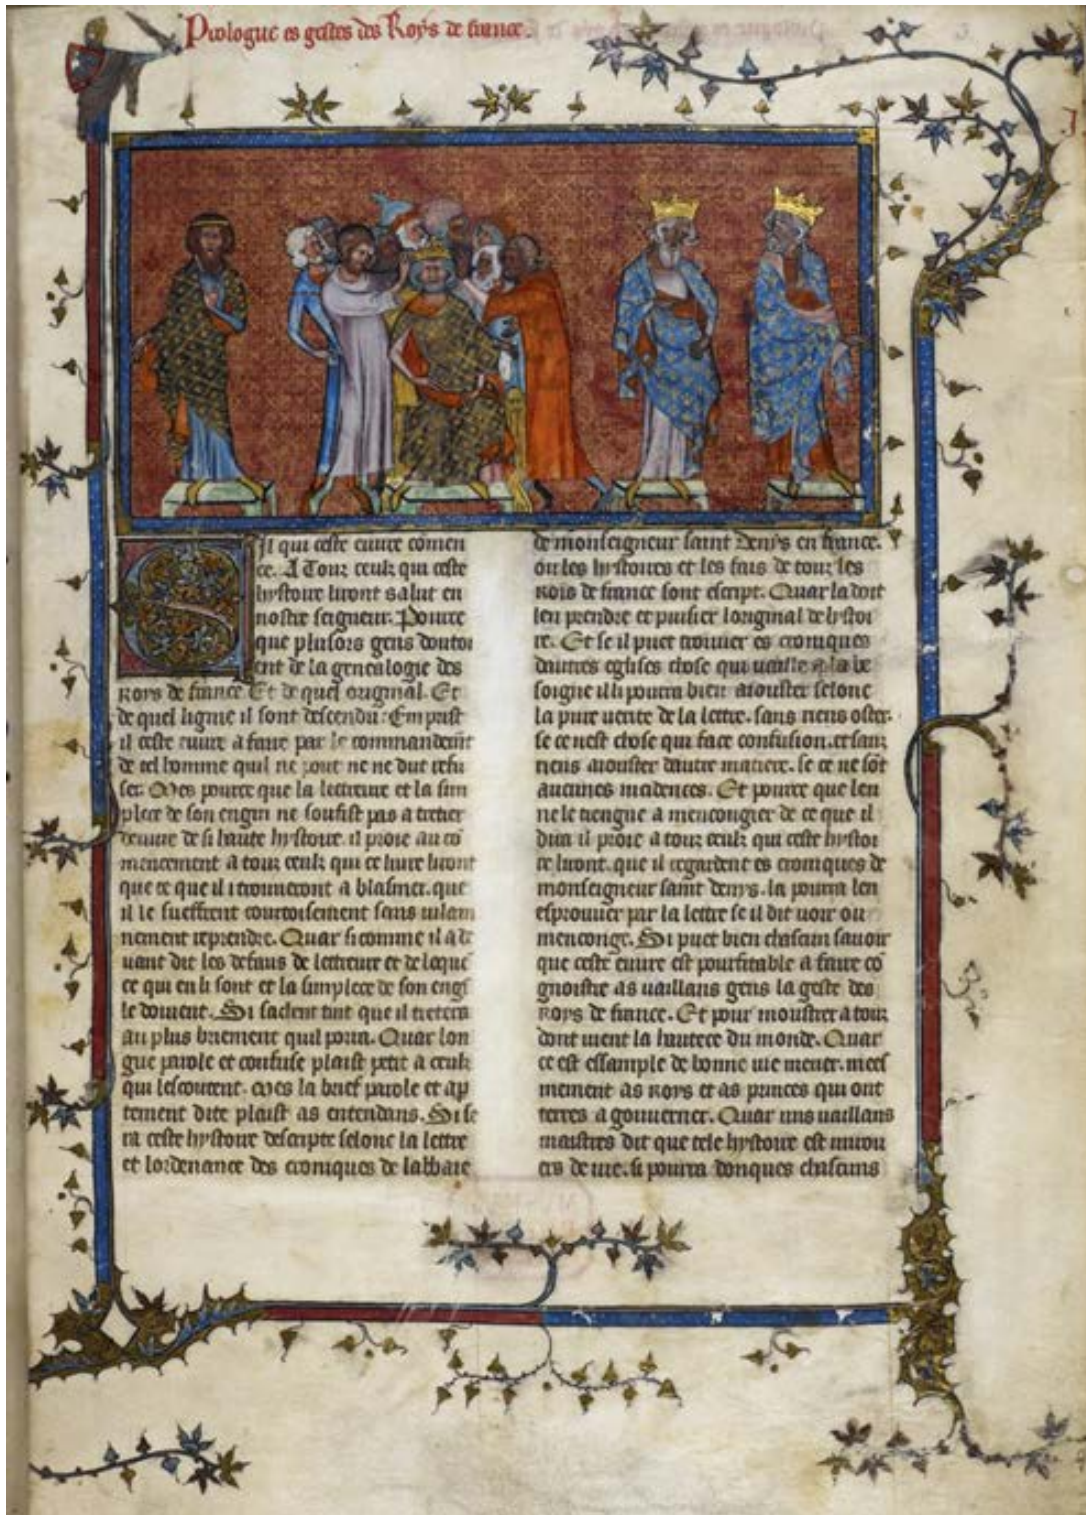 Prologue es gestes des Roys de france.
Cil qui ceste euure comen
ce. A Touz ceulz qui ceste
hystoire liront salut en
nostre seigneur. Pource
que plusors gens doutoi
ent de la genealogie des
Roys de france Et de quel original. Et
de quel lignie il sont descendu: Emprist
il ceste euure a faire par le commandemt
de tel homme quil ne pout ne ne dut refu
ser. Mes pource que la lettreure et la sim
plece de son engin ne souffist pas a tretier
deuure de si haute hystoire. il proie au co
mencement a touz ceulz qui ce liure liront
que ce que il i trouueront a blasmer. que
il le sueffrent courtoisement sans vilain
nement reprendre. Quar si comme il a de
uant dit les defaus de lettreure et de loque
ce qui en li sont et la simplece de son engi
le doiuent. Si sachent tuit que il tretera
au plus briement quil porra. Quar lon
gue parole et confuse plaist petit a ceulz
qui lescoutent. Mes la brief parole et ap
tement dite plaist as entendans. Si se
ra ceste hystoire descripte selonc la lettre
et lordenance des croniques de labbaie
de monseigneur saint Denys en france.
ou les hystoires et les fais de touz les
Rois de france sont escript. Quar la doit
len prendre et puisier loriginal de lystoi
re. Et se il puet trouuer es croniques
dautres eglises chose qui vaille a la be
soigne il li pourra bien aiouster selonc
la pure verite de la lettre. sans riens oster.
se ce nest chose qui face confusion. et sanz
riens aiouster dautre matiere. se ce ne sot
aucunes incidences. Et pource que len
ne le tiengne a mencongier de ce que il
dira il proie a touz ceulz qui ceste hystoi
re liront. que il regardent es croniques de
monseigneur saint denys. la pourra len
esprouuer par la lettre se il dit voir ou
menconge. Si puet bien chascun sauoir
que ceste euure est pourfitable a faire co
gnoistre as uaillans gens la geste des
Roys de france. Et pour moustrer a touz
dont uient la hautece du monde. Quar
ce est essample de bonne uie mener. mees
mement as roys et as princes qui ont
terres a gouuerner. Quar uns uaillans
maistres dit que tele hystoire est mirou
ers de uie. si pourra donques chascuns